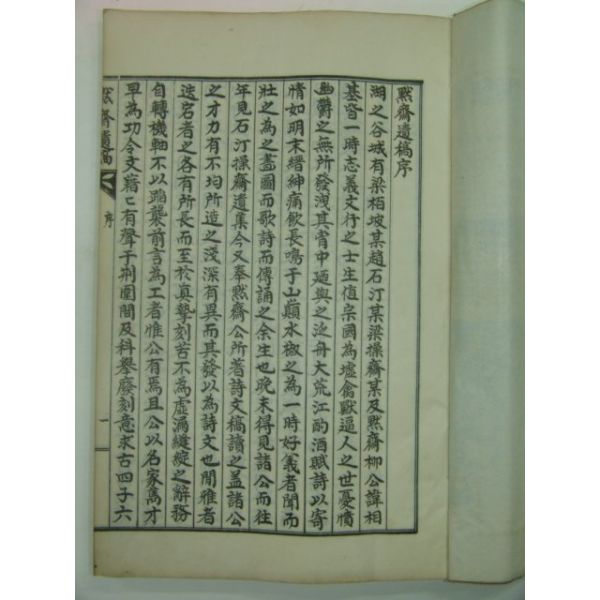 默齋遺稿序
湖之谷城有梁栢坡某趙石汀某梁操齋某及默齋柳公諱相
基皆一時志義文行之士生值宗國為墟禽獸逼人之世憂憤
幽鬱之無所發洩其胷中廼與之泛舟大荒江酌酒賦詩以寄
情如明末縉紳痛飲長鳴于山巔水椒之為一時好義者聞而
壯之為之畵圖而歌詩而傳誦之余生也晚未得見諸公而往
年見石汀操齋遺集今又奉默齋公所著詩文稿讀之盖諸公
之才力有不均所造之淺深有異而其發以為詩文也閒雅者
遒宕者之各有所長而至於真摯刻苦不為虛漏縫綻之辭務
自轉機軸不以蹈襲前言為工者惟公有焉且公以名家雋才
早為功令文藉匕有聲于荊圍間及科擧廢刻意求古四子六
默齋遺稿
序
一